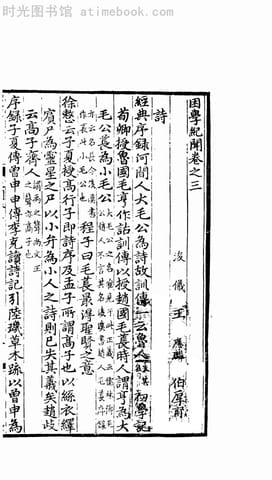 时光图书馆 · atimebook.com
困學紀聞卷之三
浚儀 王應麟 伯厚甫
詩
經典序錄河間人大毛公為詩故訓傳一云魯人失其名初學記
荀卿授魯國毛亨作詁訓傳以授趙國毛萇時人謂亨為大
毛公萇為小毛公 程子曰毛萇最得聖賢之意
徐整云子夏授高行子即詩序及孟子所謂高子也以絲衣繹
賓尸為靈星之尸以小弁為小人之詩則已失其義矣趙岐
云高子齊人謂禹之聲尚文王之聲亦高子也
序錄子夏傳曾申申傳李克讀詩記引陸璣草木疏以曾申為